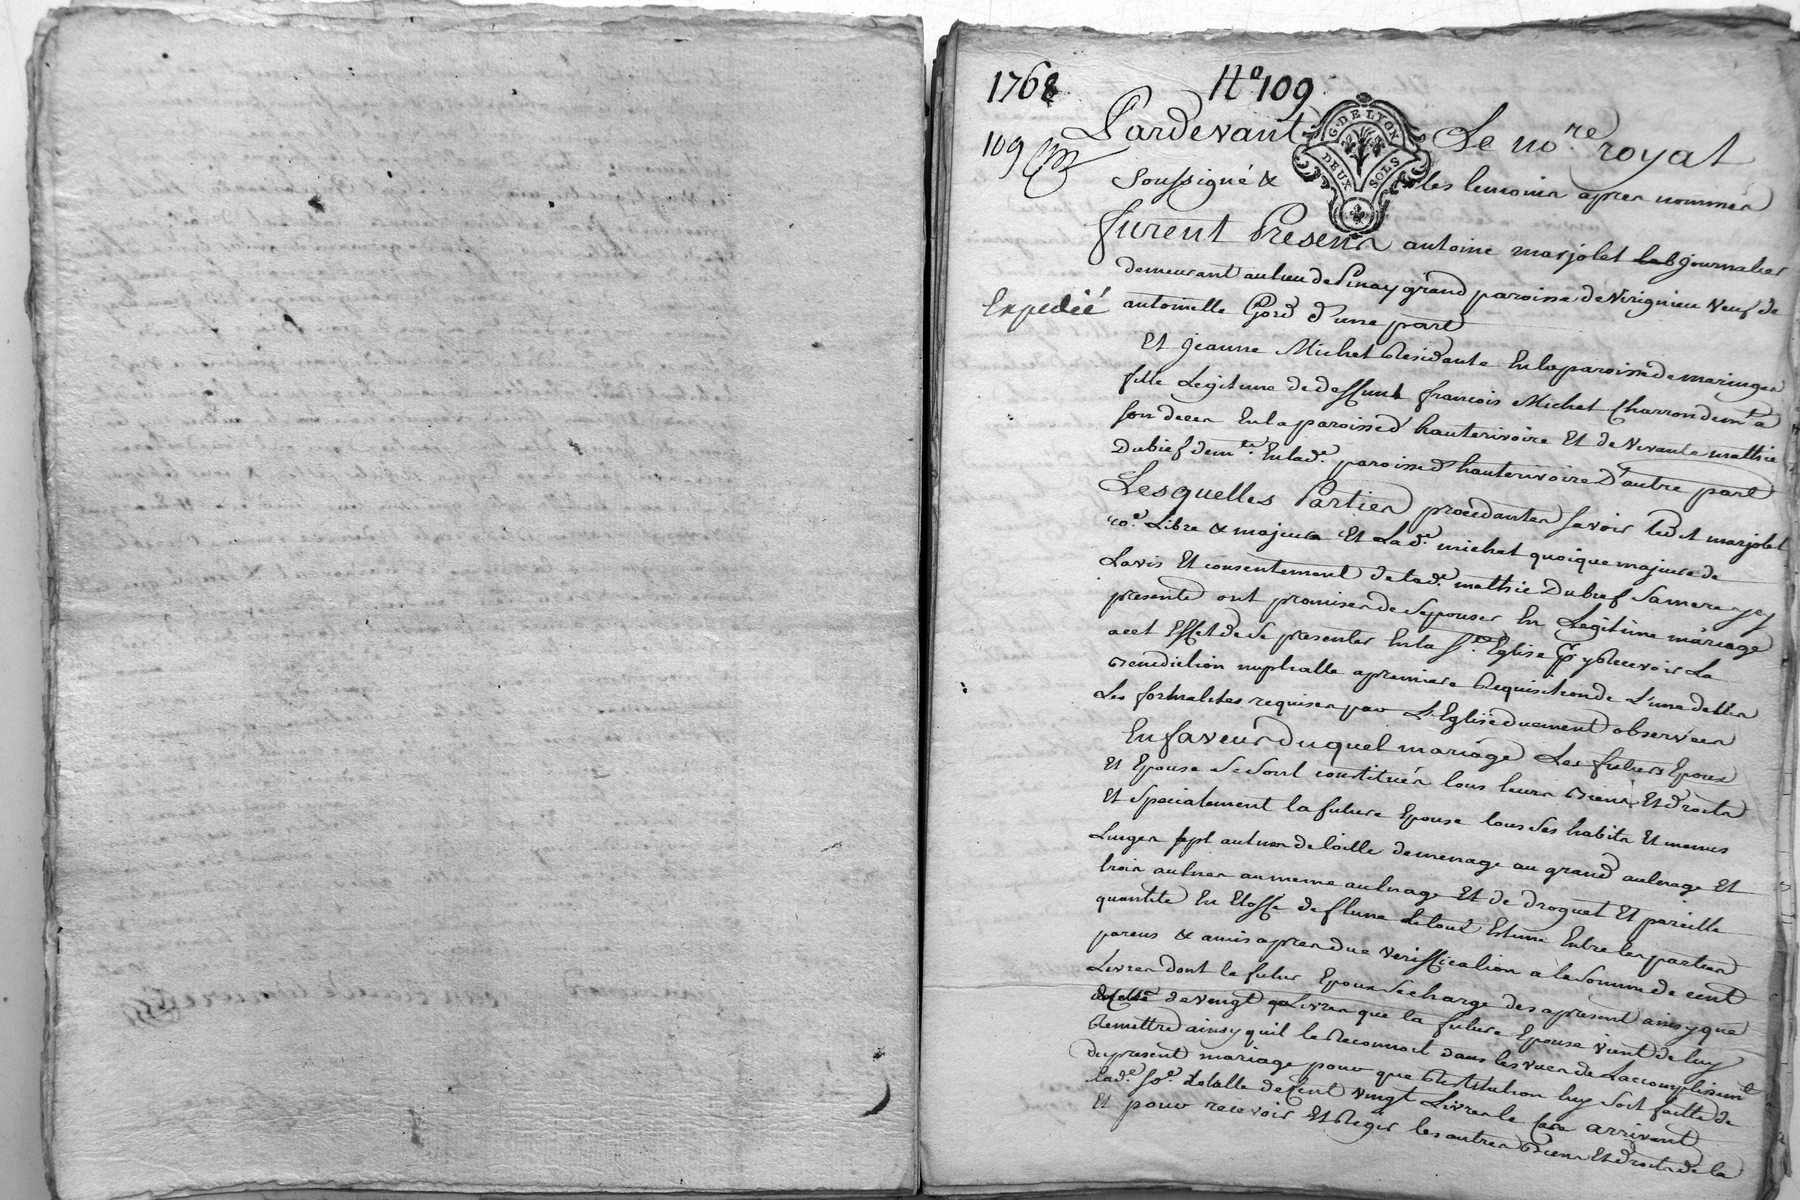 1768
N.º 109
109
G. DE LYON
DEUX SOLS
Pardevant Le no.re royal
soussigné & les temoins apres nommés
furent Presens antoine marjolet lab journalier
demeurant au lieu de Pinay grand paroisse de Virignieu veuf de
Expedié
antoinette Gord d'une part
Et jeanne Michet Residante En la paroisse de maringes
fille Legitime de deffunt francois Michet Charron dem.t a
son deces En la paroisse d'hauterivoire Et de vivante mathie
Dubief dem.te En lad.e paroisse d'hauterivoire D'autre part
Lesquelles Parties procedantes savoir led.t marjolet
co.e Libre & majeur Et La d.e michet quoique majeure de
Lavis Et consentement de lad.e mathie Dubief sa mere icy
presente ont promises de sepouser En Legitime mariage
a cet Effet de se presenter En la S.te Eglise pr y Recevoir La
Benediction nuptialle a premiere Requisition de L'une delles
Les formalites requises par L'Eglise duement observées
En faveur du quel mariage Les futurs Epoux
Et Epouse se sont constitués tous leurs Biens Et droits
Et specialement la future Epouse tous ses habits Et menus
Linges sept aulnes de toille de menage au grand aulnage Et
trois aulnes au meme aulnage Et de droguet Et pareille
quantité En Etoffe de flune le tout Estimé Entre les parties
parens & amis apres due veriffication a la somme de cent
Livres dont le futur Epoux se charge des a present ainsy que
de celle de vingt Livres que la future Epouse vient de luy
Remettre ainsy quil le Reconnoit dans les vues de Laccomplissem.t
du present mariage pour que Restitution luy soit faitte de
lad.e so.e totalle de Cent vingt Livres le cas arrivant
Et pour recevoir Et Regir les autres Biens Et droits de la